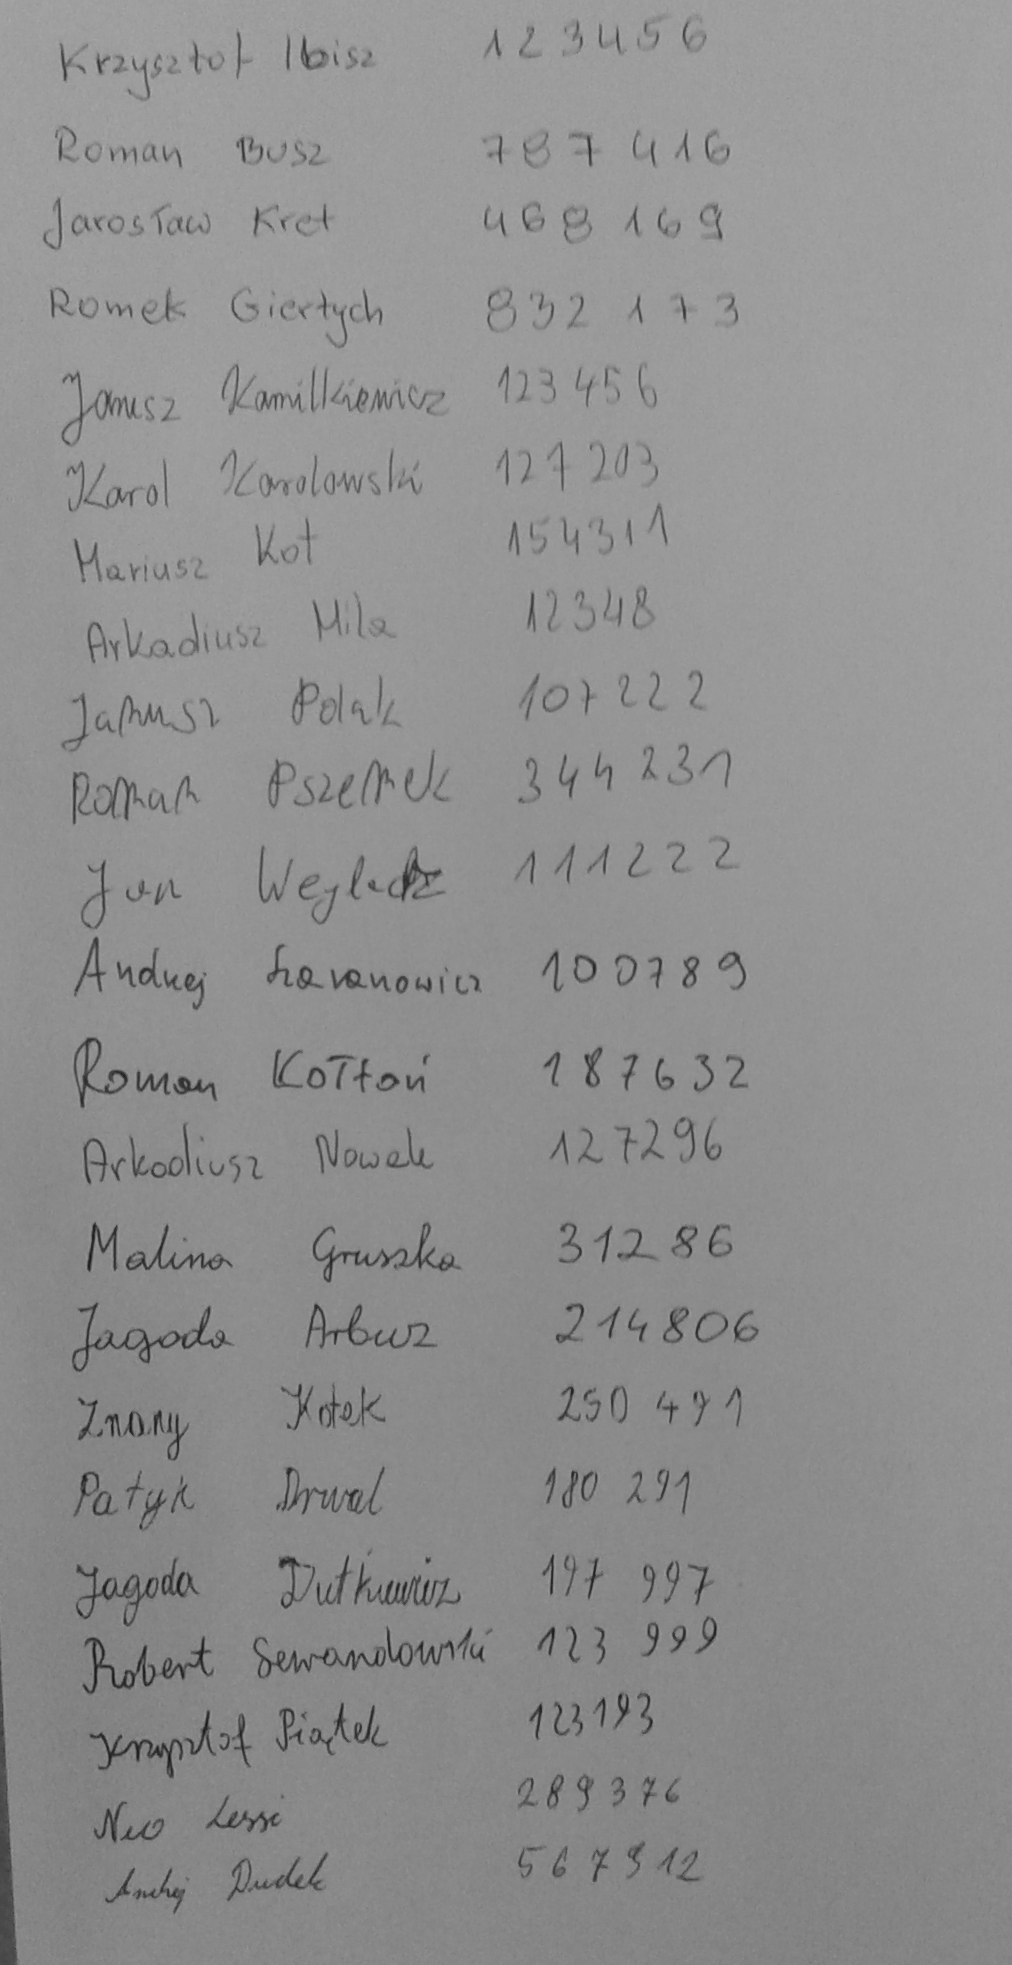 Krzysztof Ibisz 123456
Roman Busz 787416
Jarosław Kret 468169
Romek Giertych 832 173
Janusz Kamilkiewicz 123456
Karol Karolowski 127203
Mariusz Kot 154311
Arkadiusz Mila 12348
Janusz Polak 107222
Roman Pszemek 344231
Jan 111222
Andrzej 100789
Roman Kołtoń 187632
Arkadiusz Nowak 127296
Malina Gruszka 31286
Jagoda Arbuz 214806
Znany Kotek 250 491
Patyk Drwal 180 291
Jagoda Dutkiewicz 197 997
Robert Sewandowski 123 999
Krzysztof Piątek 123193
Neo Lessi 289376
Andrzej Dudek 567912